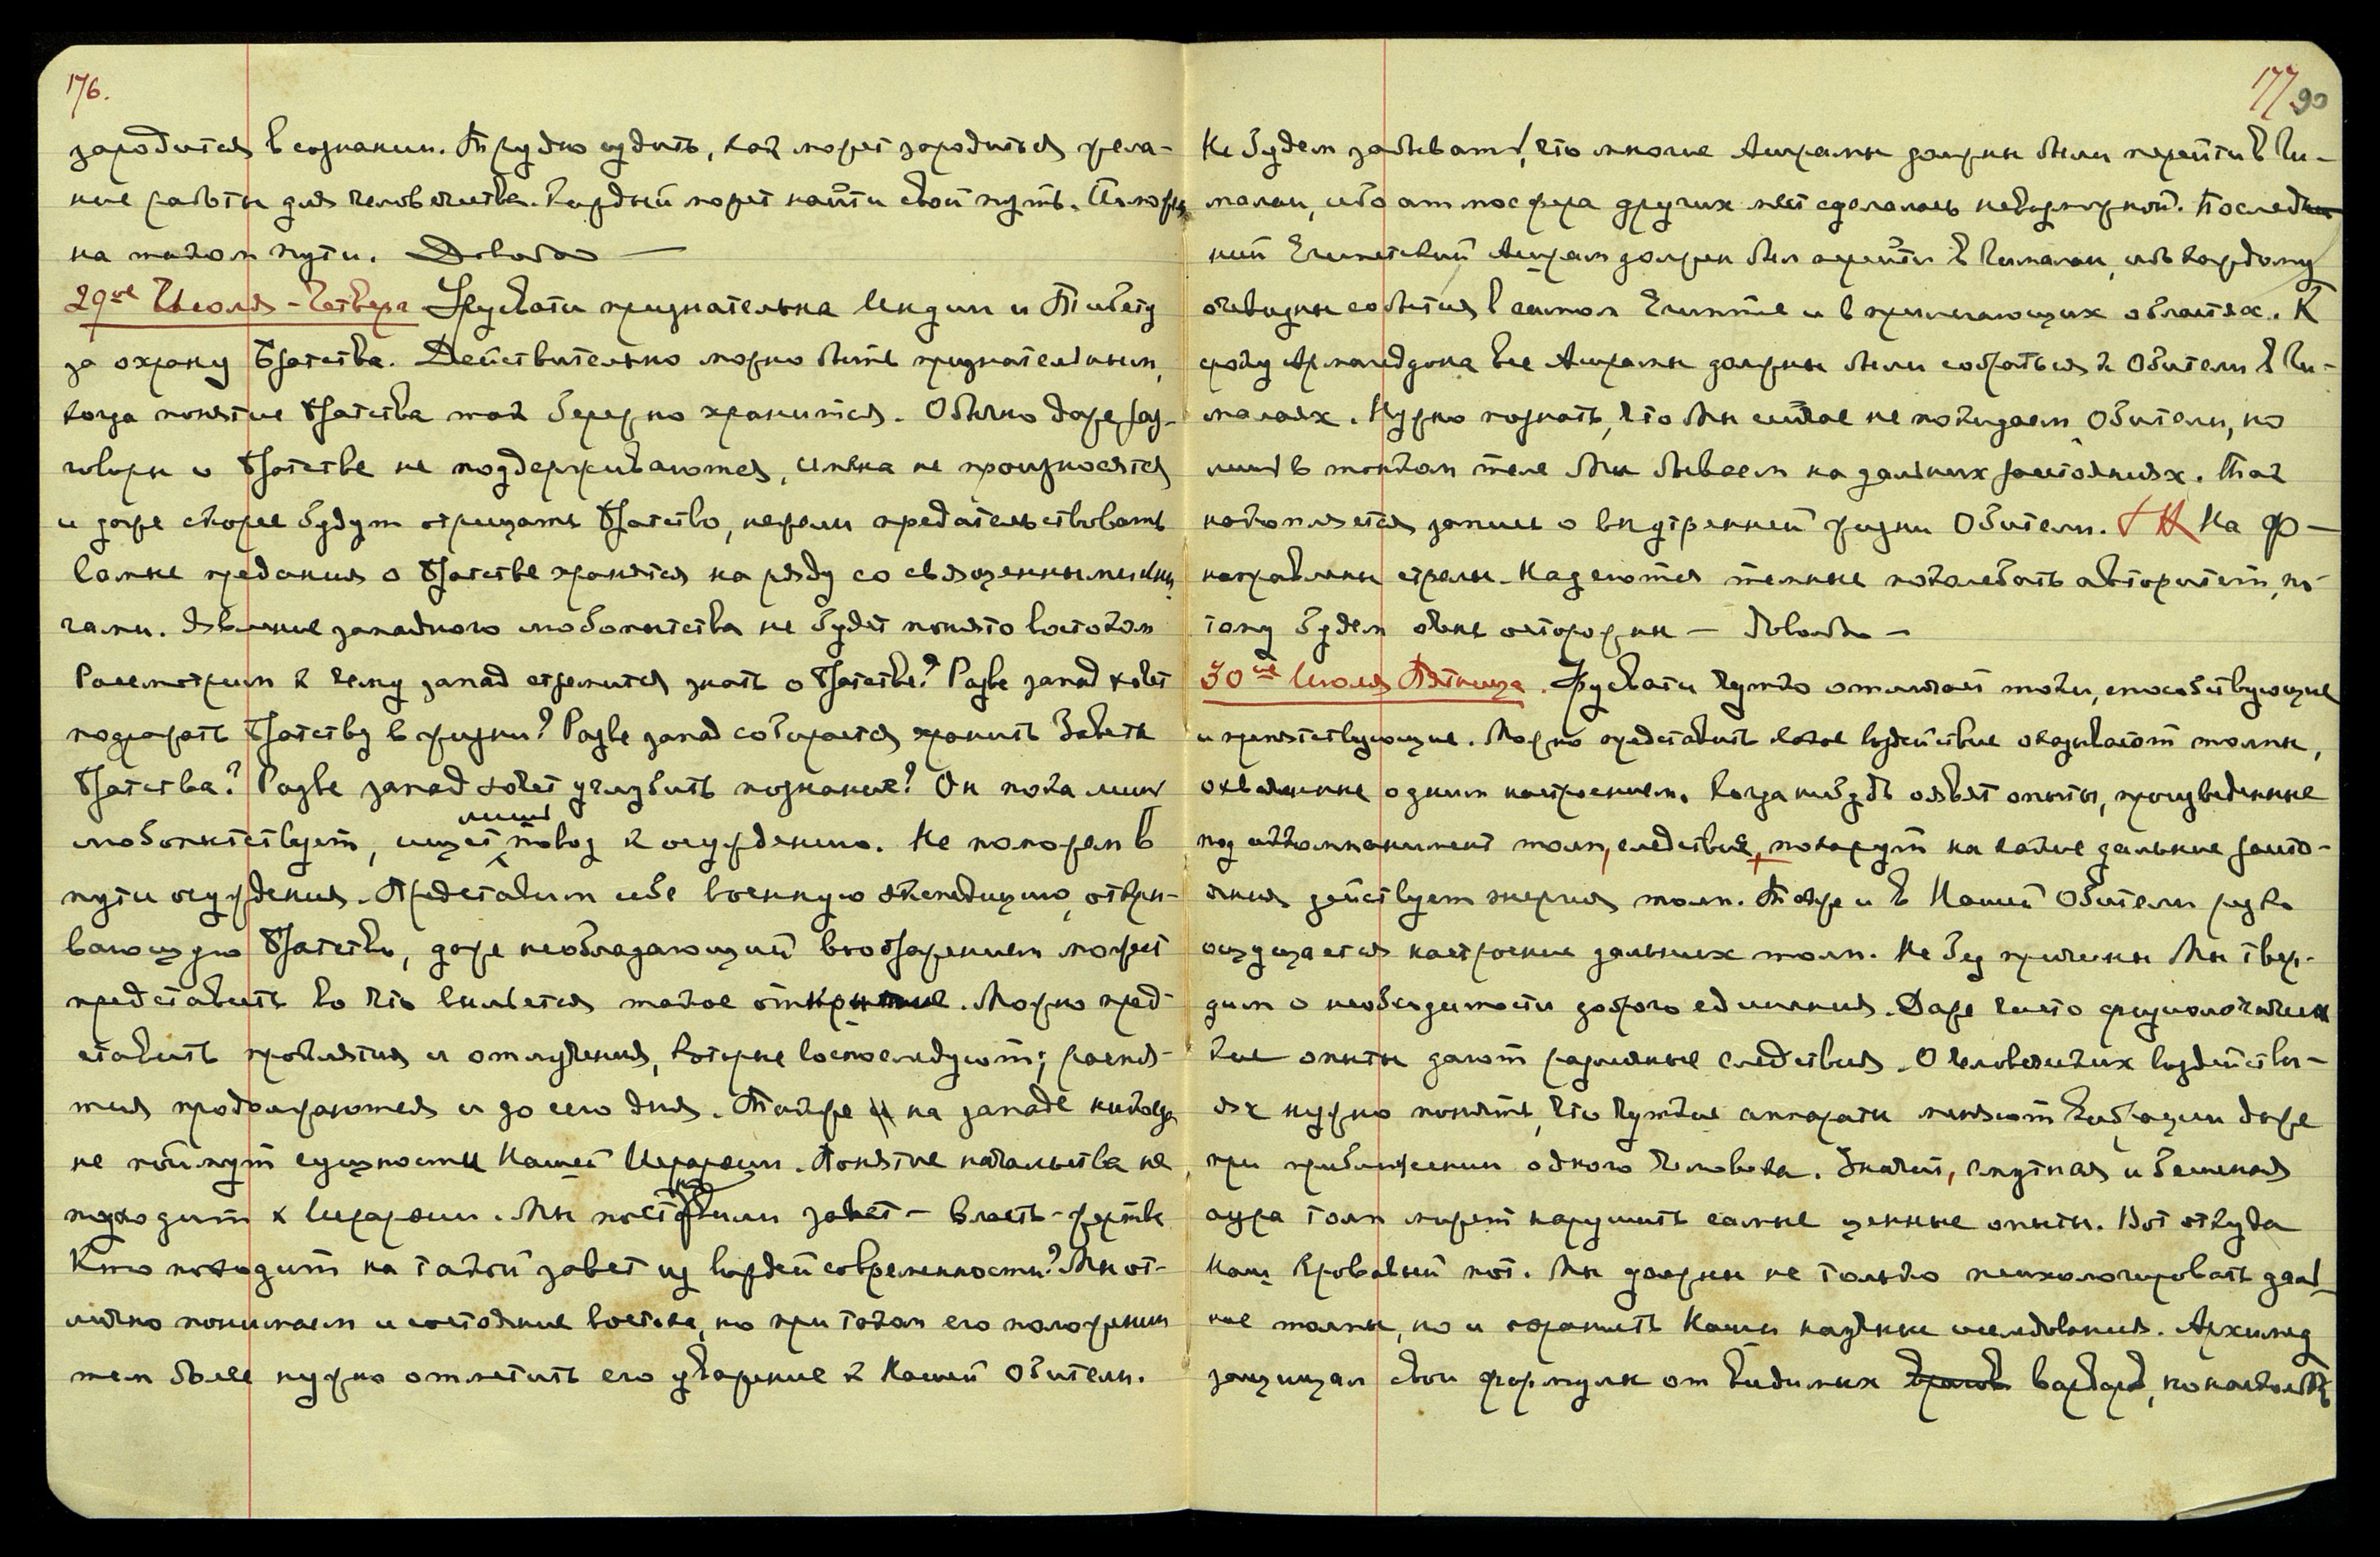 176.
зародится в сознании. Трудно судить, как может зародиться жела-
ние работы для человечества. Каждый может найти свой путь.
на таком пути. Довольно —
29ое Июля - Четверг Урусвати признательна Индии и Тибету
за охрану Братства. Действительно можно быть признательным,
когда понятие Братства так бережно хранится. Обычно даже раз-
говоры о Братстве не поддерживаются, имена не произносятся
и даже скорее будут отрицать Братство, нежели предательствовать
Самые предания о Братстве хранятся на ряду со священными кни-
гами. Явление западного любопытства не будет понято востоком
Рассмотрим к чему запад стремится знать о Братстве? Разве запад хочет
подражать Братству в жизни? Разве запад собирается хранить Заветы
Братства? Разве запад хочет углубить познание? Он пока лишь
любопытствует, ищет лишь повод к осуждению. Не поможем в
пути осуждения. Представим себе военную экспедицию, откры-
вающую Братство, даже необладающий воображением может
представить во что выльется такое открытие. Можно пред-
ставить проклятия и отлучения, которые воспоследуют; распя-
тия продолжаются и до сего дня. Также и на западе никогда
не поймут сущности Нашей Иерархии. Понятие начальства не
подходит к Иерархии. Мы поставили завет — Власть - жертва
Кто походит на такой завет из вождей современности? Мы от-
лично понимаем и состояние востока, но при таком его положении
тем более нужно отметить его уважение к Нашей Обители.
177 90
Не будем забывать, что многие Ашрамы должны были перейти в Ги-
малаи, ибо атмосфера других мест сделалась невозможной. Послед
ний Египетский Ашрам должен был перейти в Гималаи, ибо каждому
очевидны события в самом Египте и в прилегающих областях. К
сроку Армагеддона все Ашрамы должны были собраться к Обители в Ги-
малаях. Нужно познать, что Мы сейчас не покидаем Обители, но
лишь в тонком теле Мы бываем на дальних расстояниях. Так
накопляется запись о внутренней жизни Обители. На Ф —
направлены стрелы. Надеются темные поколебать авторитет, по-
тому будем очень осторожны — Довольно —
30ое Июля Пятница. Урусвати чутко отличает токи, способствующие
и препятствующие. Можно представить какое воздействие оказывают толпы,
охваченные одним настроением. Когда нибудь опыты, произведенные
под аккомпанимент толп, следствия, покажут на какие дальние рассто-
яния действует энергия толп. Также и в Нашей Обители резко
ощущается настроение дальних толп. Не без причины Мы твер-
дим о необходимости доброго единения. Даже чисто физиологичес
кие опыты дают различные следствия. О человеческих воздействи-
ях нужно понять, что чуткие аппараты меняют вибрации даже
при приближении одного человека. Значит, смутная и бешеная
аура толп может нарушить самые ценные опыты. Вот откуда
Наш кровавый пот. Мы должны не только психологировать даль-
ние толпы, но и охранить Наши научные исследования. Архимед
защищал свои формулы от видимых врагов варваров, но насколько